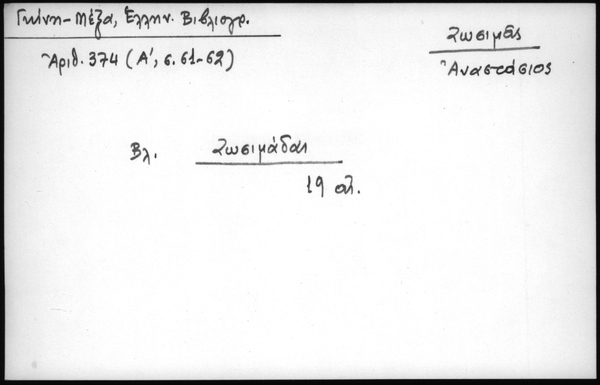 Γκίνη-Μέξα, Ἑλλην. Βιβλιογρ.
Ἀριθ. 374 (Α΄, σ. 61-62)
Ζωσιμᾶς
Ἀναστάσιος
Βλ. Ζωσιμάδαι
19 αἰ.